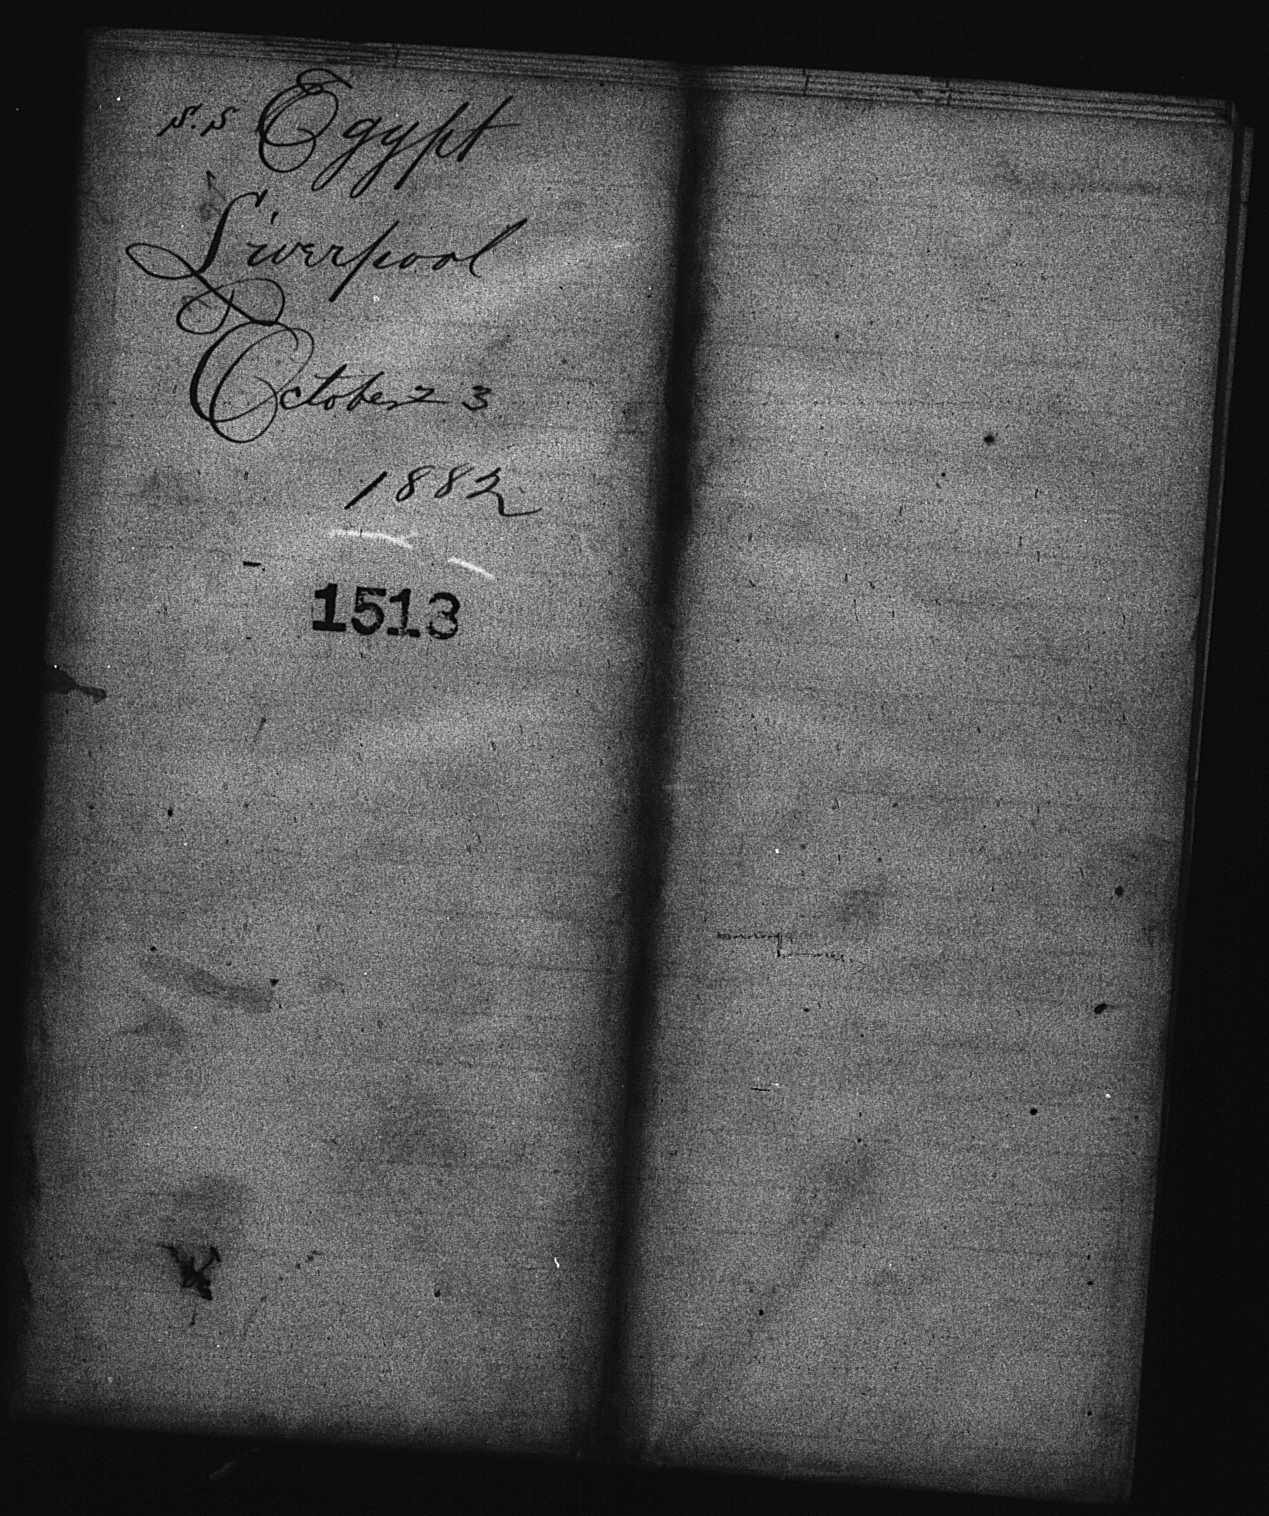 S.S Egypt
Liverpool
October 23
1882
1513